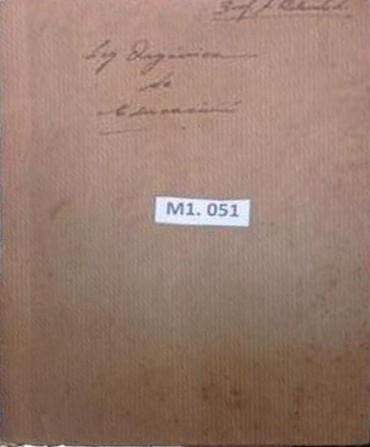 Ley Orgánica
de
Educación
M1. 051